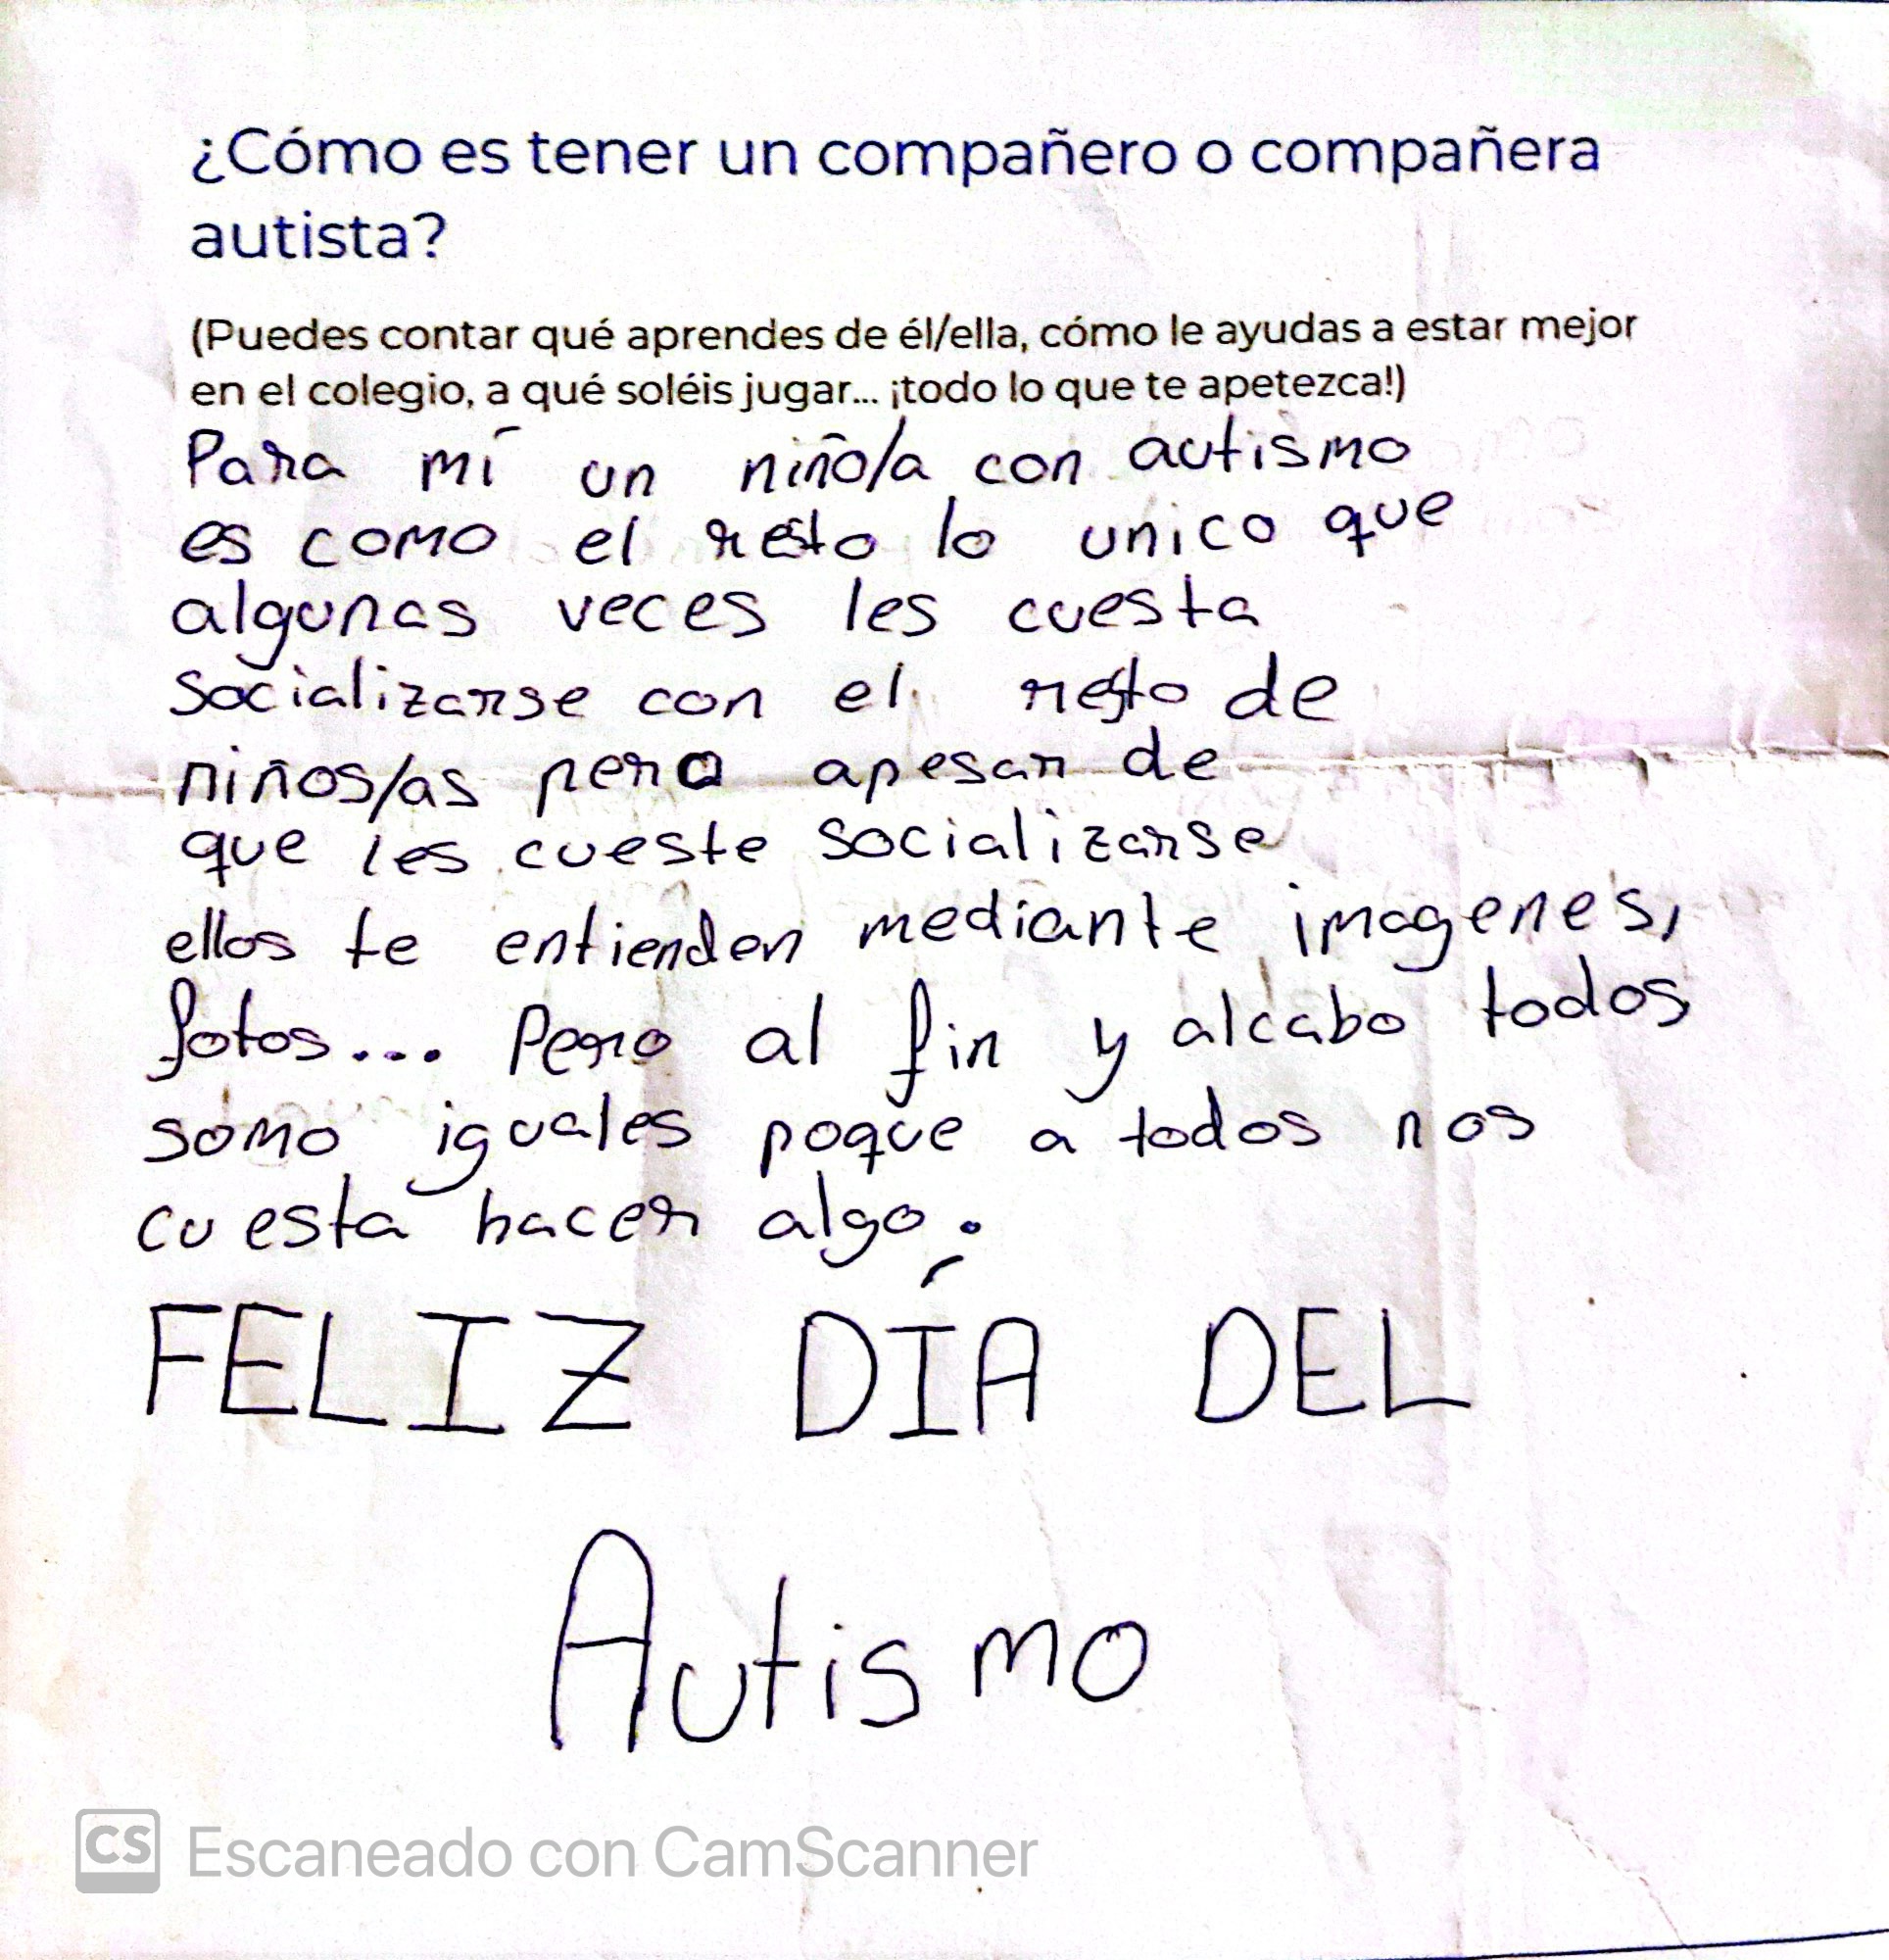 ¿Cómo es tener un compañero o compañera
autista?
(Puedes contar qué aprendes de él/ella, cómo le ayudas a estar mejor
en el colegio, a qué soléis jugar... ¡todo lo que te apetezca!)
Para mí un niño/a con autismo
es como el resto lo unico que
algunas veces les cuesta
socializarse con el resto de
niños/as pero apesar de
que les cueste socializarse
ellos te entienden mediante imagenes,
fotos... Pero al fin y alcabo todos
somo iguales poque a todos nos
cuesta hacer algo.
FELIZ DÍA DEL
Autismo
CS Escaneado con CamScanner